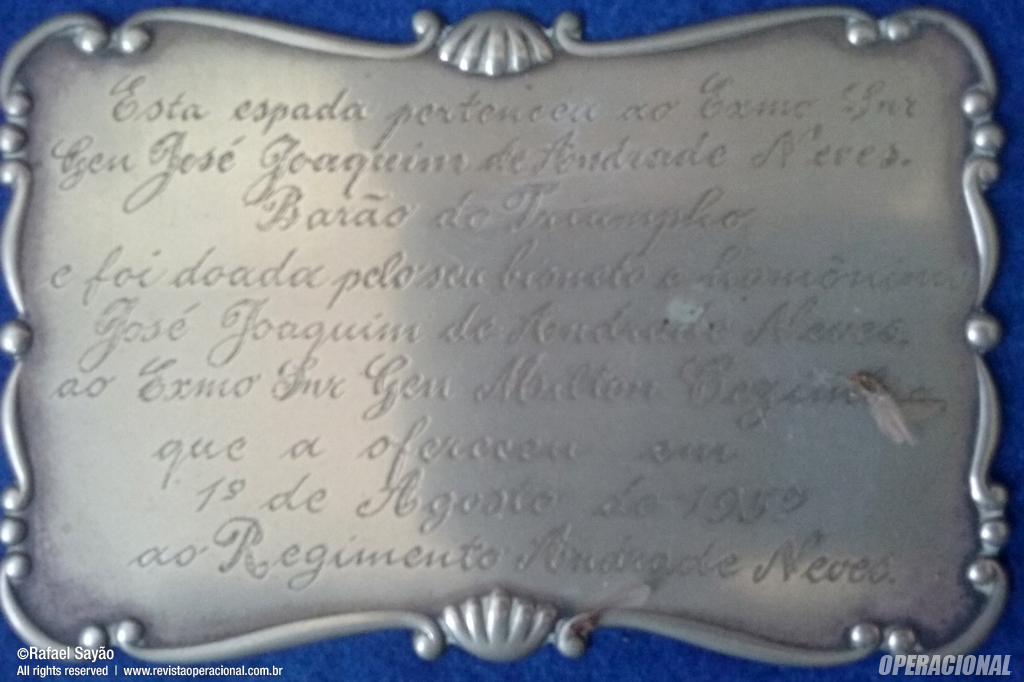 Esta espada pertenceu ao Exmo Snr
Gen José Joaquim de Andrade Neves.
Barão do Triumpho
e foi doada pelo seu bisneto e homônimo
José Joaquim de Andrade Neves.
ao Exmo Snr Gen Milton Cezimbra,
que a ofereceu em
1º de Agosto de 1959
ao Regimento Andrade Neves.
©Rafael Sayão
All rights reserved | www.revistaoperacional.com.br
OPERACIONAL